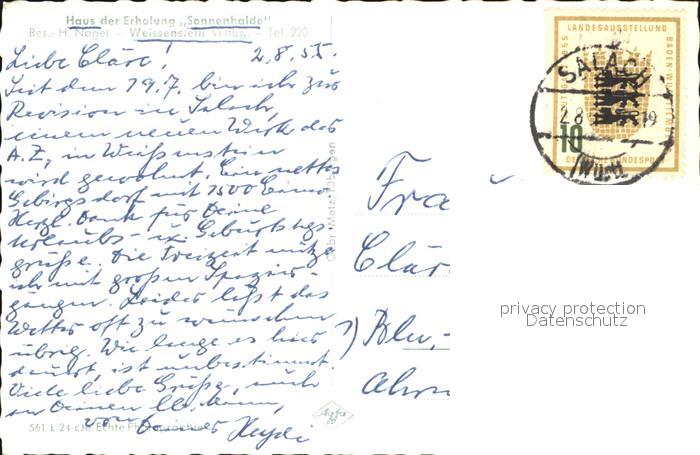 Haus der Erholung „Sonnenhalde"
Bes.: H. Nagel - Weissenstein Wttbg. - Tel. 220
Liebe Cläre! 2.8.55.
Seit dem 19.7. bin ich zur
Revision in Salach,
einem neuen Werk des
A.Z., in Weißenstein
wird gewohnt. Ein nettes
Gebirgsdorf mit 1500 Einw.
Herzl. Dank für Deine
Urlaubs- u. Geburtstags-
grüße. Die Freizeit nütze
ich mit großen Spazier-
gängen. Leider läßt das
Wetter oft zu wünschen
übrig. Wie lange es hier
dauert, ist unbestimmt.
Viele liebe Grüße, auch
an Deinen lb. Mann,
von Deiner Heydi
561 L 24 cJe Echte Photographie
Gebr. Metz, Tübingen
Agfa
LANDESAUSSTELLUNG
BADEN-WÜRTTEMBERG
1955
10
DEUTSCHE BUNDESPOST
SALACH
2.8
19
(Württ)
Fra
Clär
Blu,-
privacy protection
Datenschutz